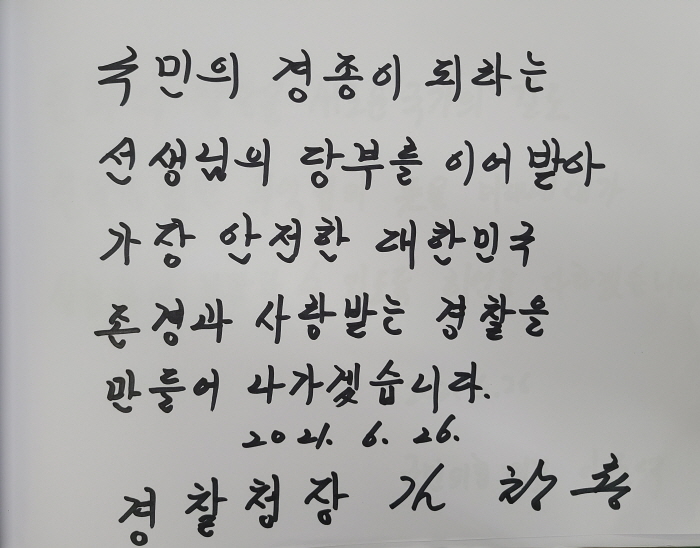 국민의 경종이 되라는
선생님의 당부를 이어 받아
가장 안전한 대한민국
존경과 사랑받는 경찰을
만들어 나가겠습니다.
2021. 6. 26.
경찰청장 김창룡